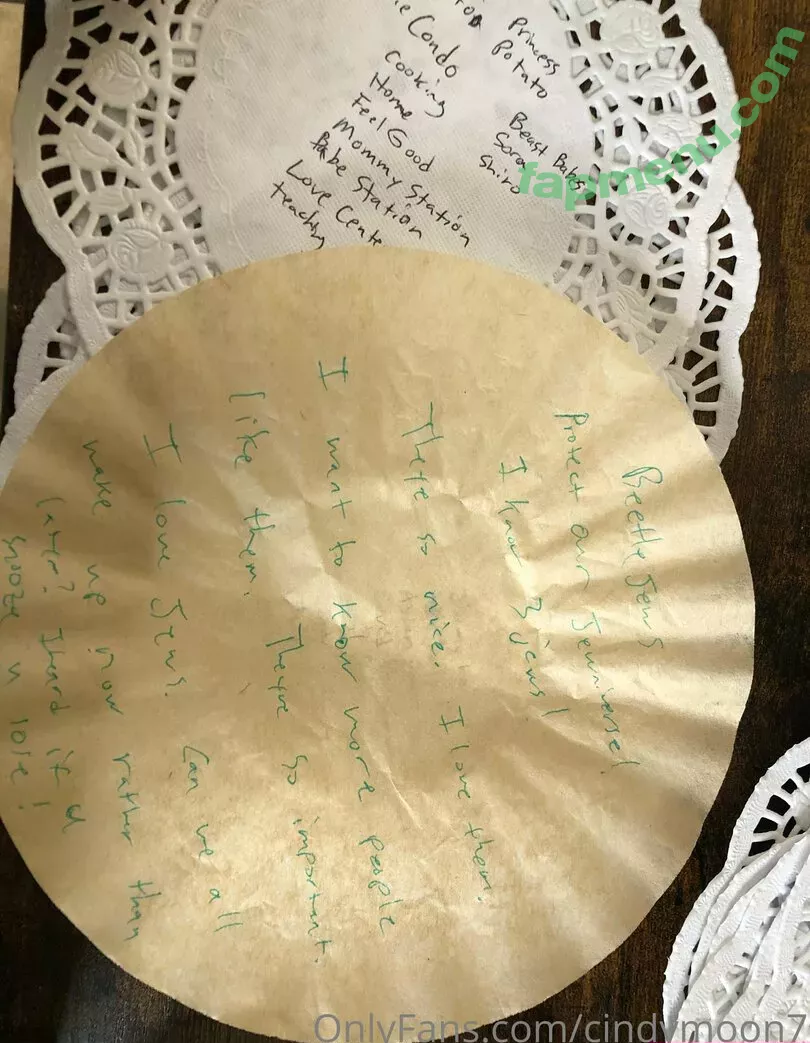 Condo
Cooking
Home
Feel Good
Mommy Station
Babe Station
Love Cente
Princess
Potato
Beast Babes
Sora
Shiro
fapmenu.com
Beetle Jews
Protect our Jewniverse!
I know 3 jews!
There so nice. I love them.
I want to know more people
like them. They're so important.
I love Jews. Can we all
make up now rather than
later? I heard it'd
snooze u lose!
OnlyFans.com/cindymoon7